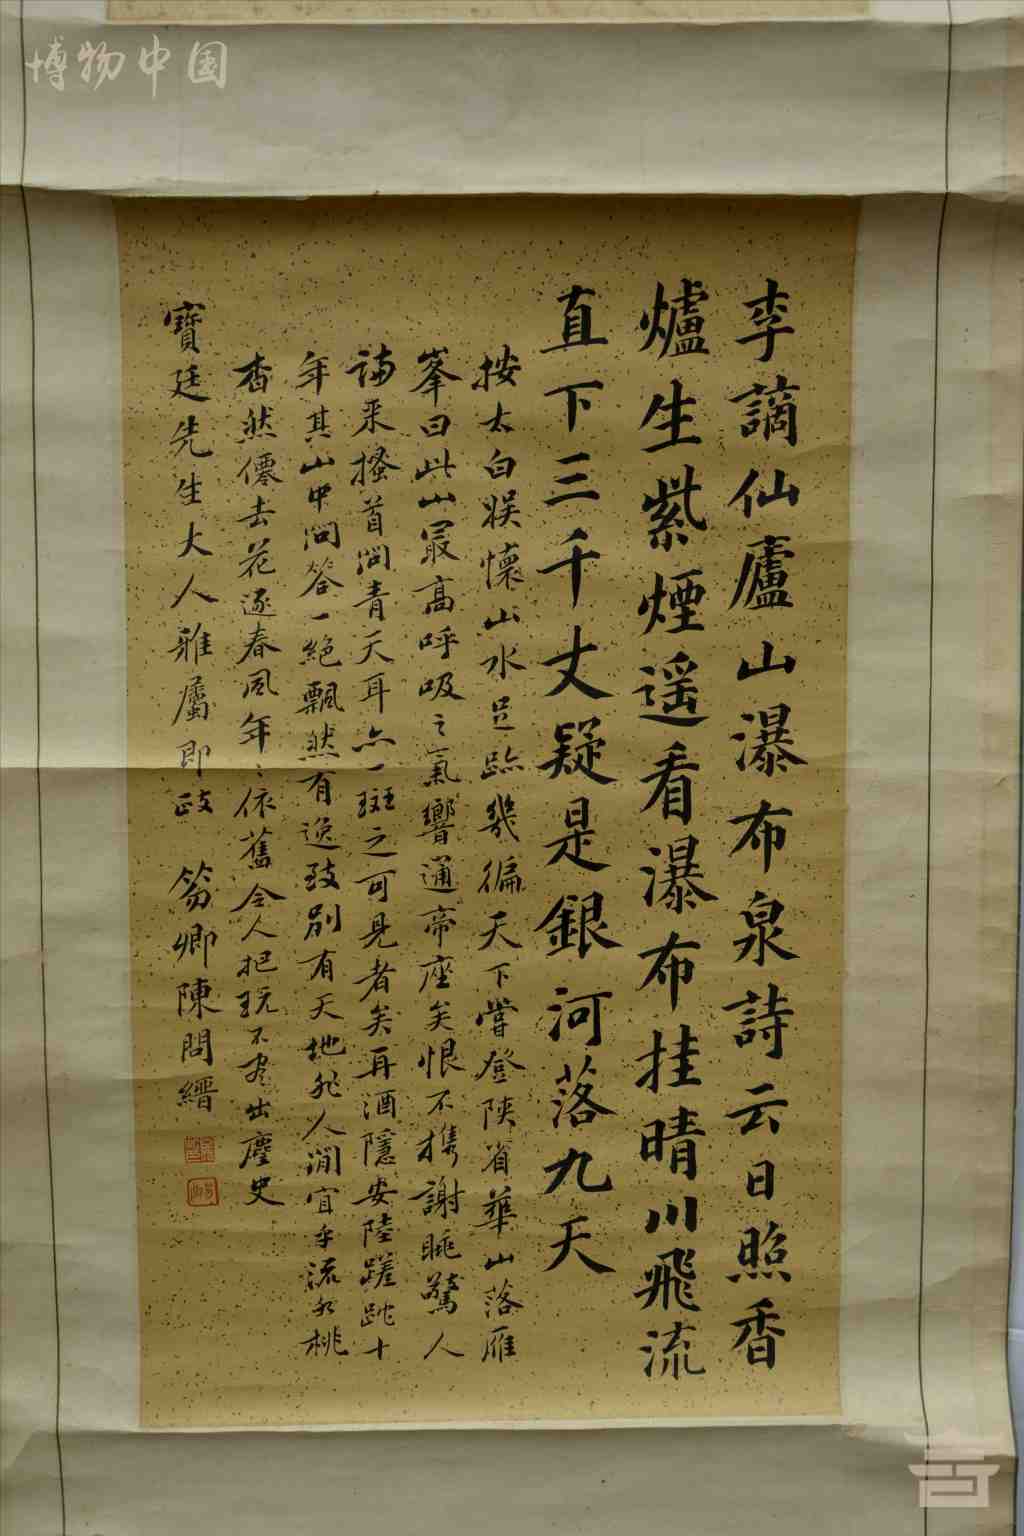 博物中国
李謫仙廬山瀑布泉詩云日照香
爐生紫煙遥看瀑布挂晴川飛流
直下三千丈疑是銀河落九天
按太白娛懷山水足跡幾徧天下嘗登陝省華山落雁
峯曰此山最高呼吸之氣響通帝座矣恨不携謝眺驚人
詩来搔首問青天耳亦一斑之可見者矣再酒隱安陸蹉跎十
年其山中问答一絕飄然有逸致別有天地非人間宜乎流水桃
杳然僊去花逐春風年々依舊令人把玩不盡出塵史
寶廷先生大人雅屬即政 芴卿陳問縉